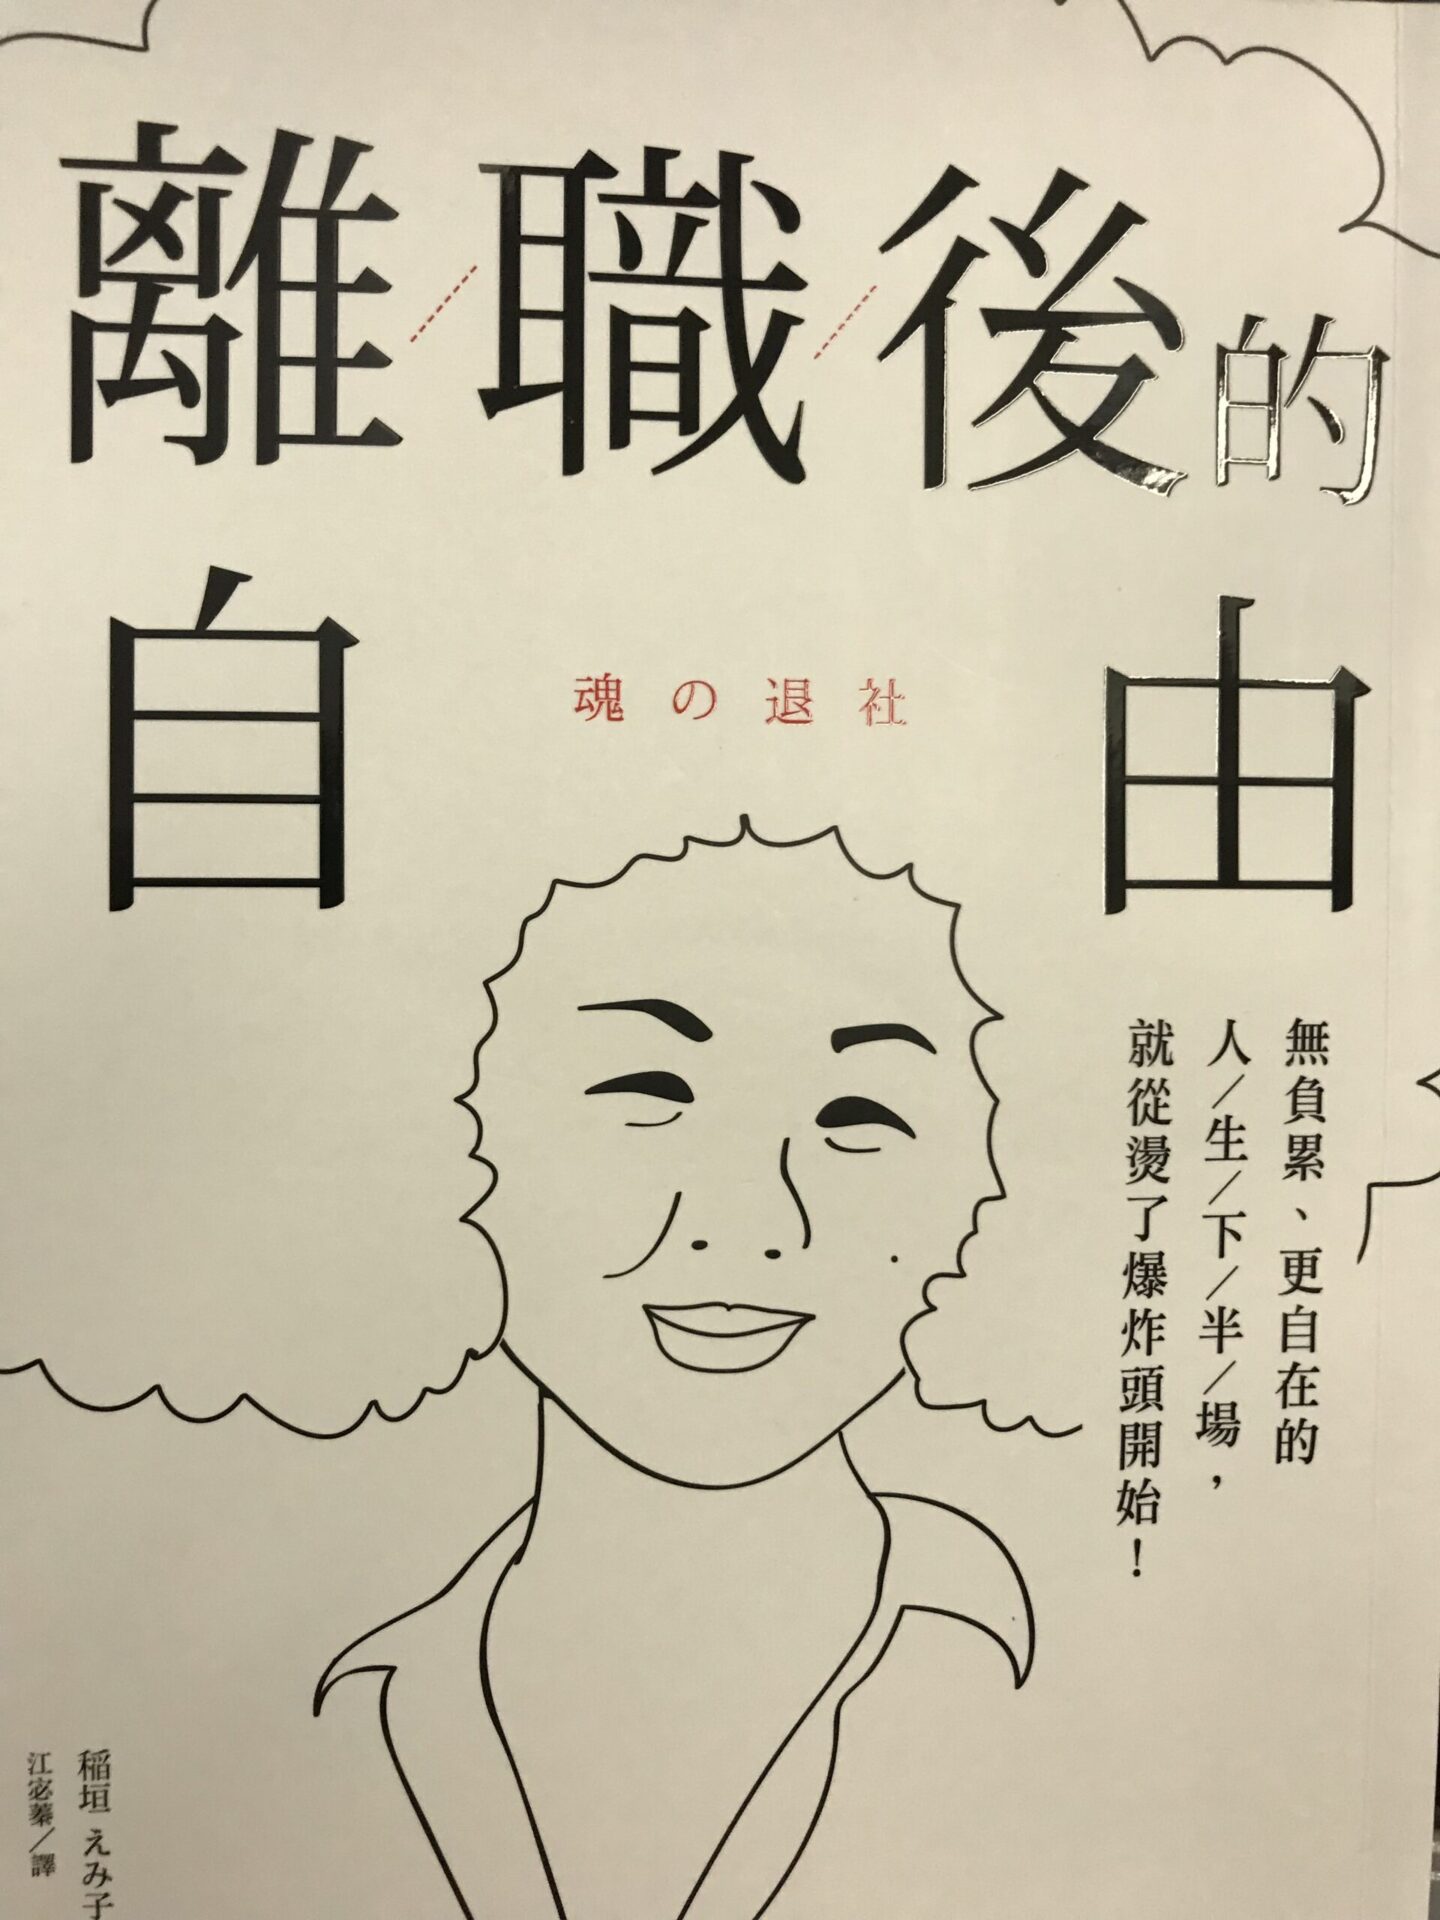 離/職/後的
自由
魂の退社
無負累、更自在的
人/生/下/半/場，
就從燙了爆炸頭開始！
稲垣 えみ子
江宓蓁/譯